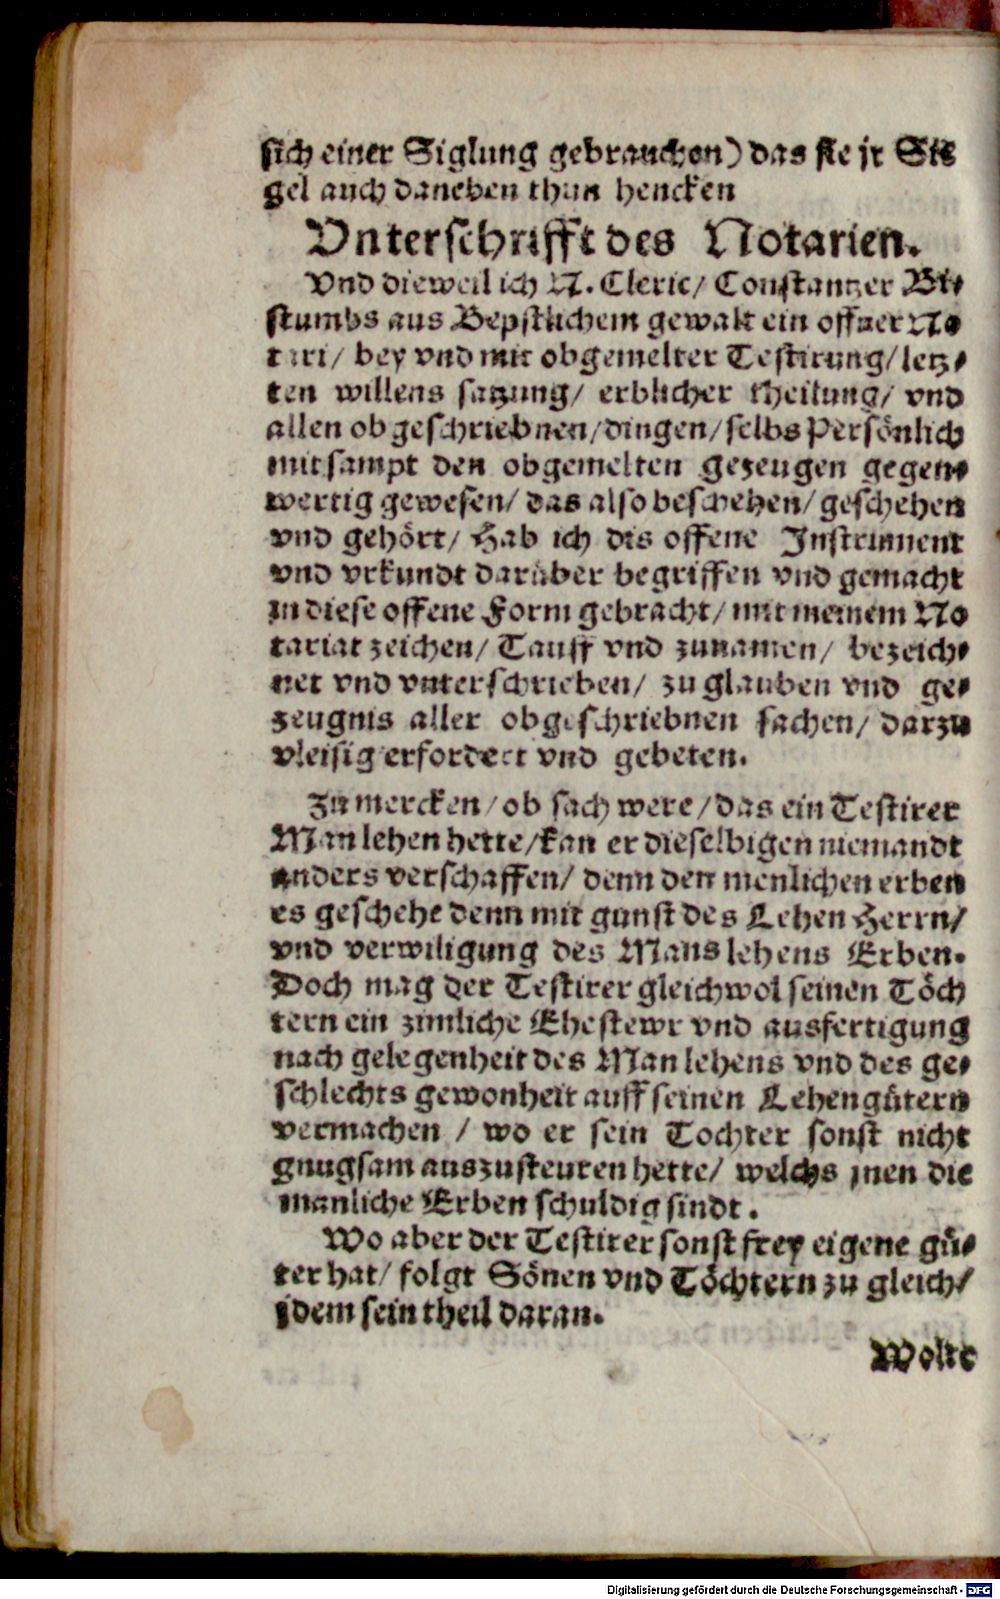 sich einer Siglung gebrauchen) das sie jr Sie
gel auch daneben thun hencken
Vnterschrifft des Notarien.
Vnd dieweil ich N. Cleric/ Constantzer Bi⸗
stumbs aus Bepstlichem gewalt ein offner No
tari/ bey vnd mit obgemelter Testirung/ letz⸗
ten willens satzung/ erblicher theilung/ vnd
allen obgeschriebnen/ dingen/ selbs Persönlich
mitsampt den obgemelten gezeugen gegen⸗
wertig gewesen/ das also beschehen/ geschehen
vnd gehört/ Hab ich dis offene Instrument
vnd vrkundt darüber begriffen vnd gemacht
in diese offene Form gebracht/ mit meinem No
tariat zeichen/ Tauff vnd zunamen/ bezeich⸗
net vnd vnterschrieben/ zu glauben vnd ge⸗
zeugnis aller obgeschriebnen sachen/ darzu
vleisig erfordert vnd gebeten.
Zu mercken/ ob sach were/ das ein Testirer
Man lehen hette/ kan er dieselbigen niemandt
anders verschaffen/ denn den menlichen erben
es geschehe denn mit gunst des Lehen Herrn/
vnd verwiligung des Mans lehens Erben.
Doch mag der Testirer gleichwol seinen Töch
tern ein zimliche Ehestewr vnd ausfertigung
nach gelegenheit des Man lehens vnd des ge⸗
schlechts gewonheit auff seinen Lehengütern
vermachen / wo er sein Tochter sonst nicht
gnugsam auszusteuren hette/ welchs jnen die
manliche Erben schuldig sindt.
Wo aber der Testirer sonst frey eigene gü⸗
ter hat/ folgt Sönen vnd Töchtern zu gleich/
jdem sein theil daran.
Wolte
Digitalisierung gefördert durch die Deutsche Forschungsgemeinschaft - DFG